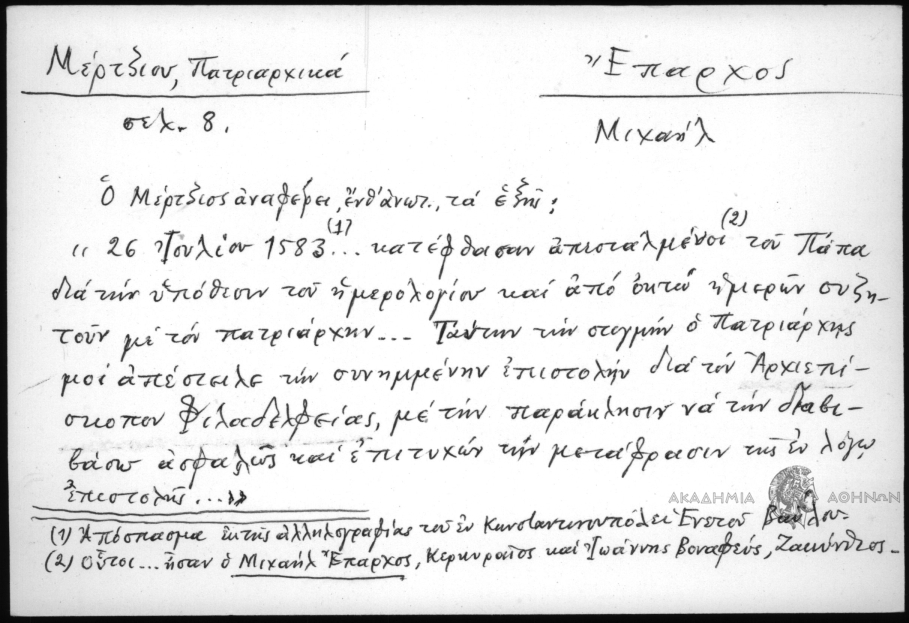 Μέρτζιου, Πατριαρχικά
σελ. 8.
Ἔπαρχος
Μιχαήλ
Ὁ Μέρτζιος ἀναφέρει, ἔνθ' ἀνωτ., τά ἑξῆς:
“ 26 Ἰουλίου 1583 (1)... κατέφθασαν ἀπεσταλμένοι (2) τοῦ Πάπα
διά τήν ὑπόθεσιν τοῦ ἡμερολογίου καί ἀπό ὀκτώ ἡμερῶν συζη-
τοῦν μέ τόν πατριάρχην... Ταύτην τήν στιγμήν ὁ Πατριάρχης
μοί ἀπέστειλε τήν συνημμένην ἐπιστολήν διά τόν Ἀρχιεπί-
σκοπον Φιλαδελφείας, μέ τήν παράκλησιν νά τήν διαβι-
βάσω ἀσφαλῶς καί ἐπιτυχών τήν μετάφρασιν τῆς ἐν λόγῳ
ἐπιστολῆς...”
ΑΚΑΔΗΜΙΑ ΑΘΗΝΩΝ
(1) Ἀπόσπασμα ἐκ τῆς ἀλληλογραφίας τοῦ ἐν Κωνσταντινουπόλει Ἑνετοῦ Βαΐλου-
(2) Οὗτοι... ἦσαν ὁ Μιχαήλ Ἔπαρχος, Κερκυραῖος καί Ἰωάννης Βοναφεύς, Ζακύνθιος-